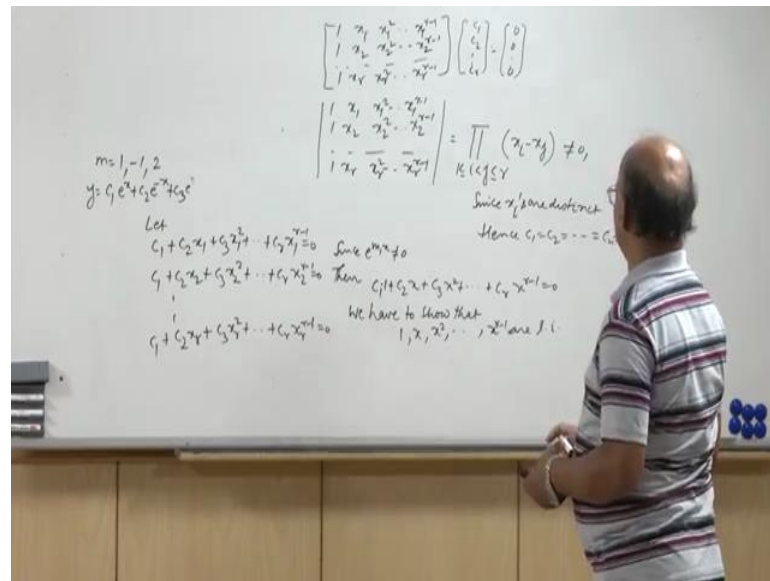 [1 x₁ x₁² ‥ x₁^{r-1}] [c₁] [0]
[1 x₂ x₂² ‥ x₂^{r-1}] [c₂] = [0]
[1 x_r x_r² ‥ x_r^{r-1}] [c_r] [0]
|1 x₁ x₁² ‥ x₁^{r-1}|
|1 x₂ x₂² ‥ x₂^{r-1}| = ∏ (x_i - x_j) ≠ 0,
|1 x_r x_r² ‥ x_r^{r-1}| 1≤i<j≤r
Since x_i's are distinct
Hence c₁=c₂=---=c_r
m=1,-1,2
y=c₁e^x+c₂e^{-x}+c₃e
Let
c₁+c₂x₁+c₃x₁²+‥+c_r x₁^{r-1}=0
c₁+c₂x₂+c₃x₂²+‥+c_r x₂^{r-1}=0
c₁+c₂x_r+c₃x_r²+‥+c_r x_r^{r-1}=0
Since e^{m₁x}≠0
Then c₁·1+c₂x+c₃x²+‥+c_r x^{r-1}=0
We have to show that
1, x, x², ‥ , x^{r-1} are l.i.